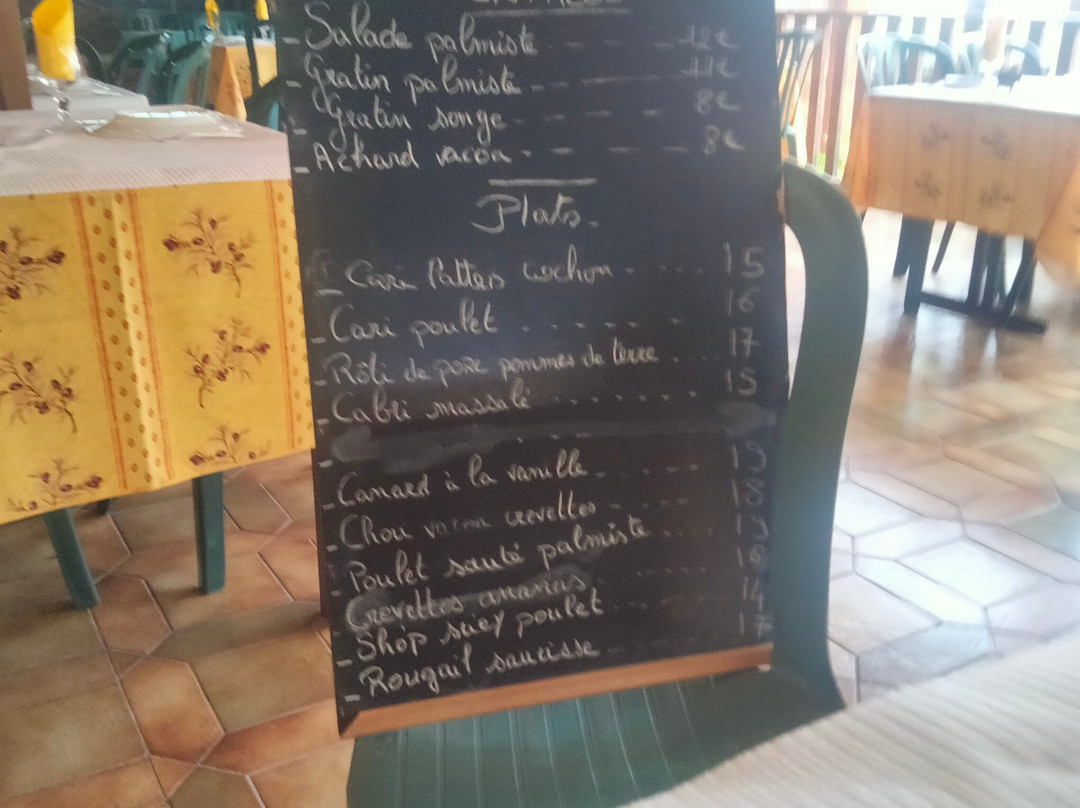 - Salade palmiste - - - - 12€
- Gratin palmiste - - - - 11€
- Gratin songe - - - - 8€
- Achard vacoa - - - - 8€
Plats.
- Cari Pattes cochon . . . . 15
- Cari poulet . . . . . . 16
- Rôti de porc pommes de terre . . . . 17
- Cabri massalé . . . . . . . 15
-
- Canard à la vanille . . . . . 19
- Chou crevettes . . . . 18
- Poulet sauté palmiste . . . . . 19
Crevettes ananas . . . . . . 16
- Shop suey poulet . . . . . 14
- Rougail saucisse . . . . . 17